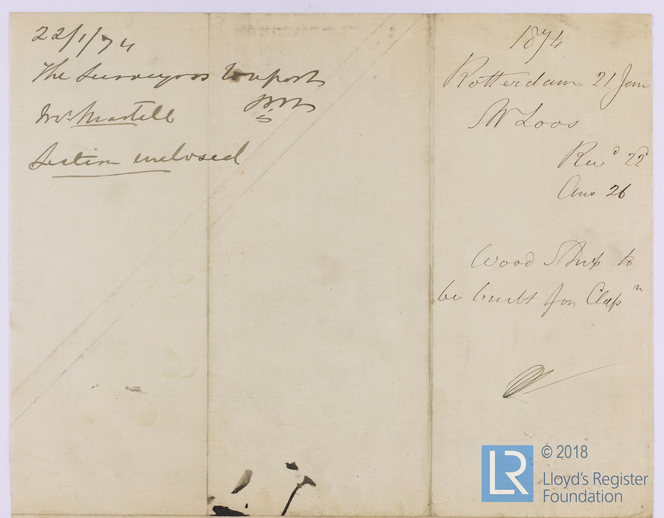 22/1/74
The Surveyors to report
Mr Martell
Section enclosed
1874
Rotterdam 21 Jan
W Loos
Recd 22d
Ans 26
Wood Ship to
be built for Classn
© 2018
LR
Lloyd's Register
Foundation